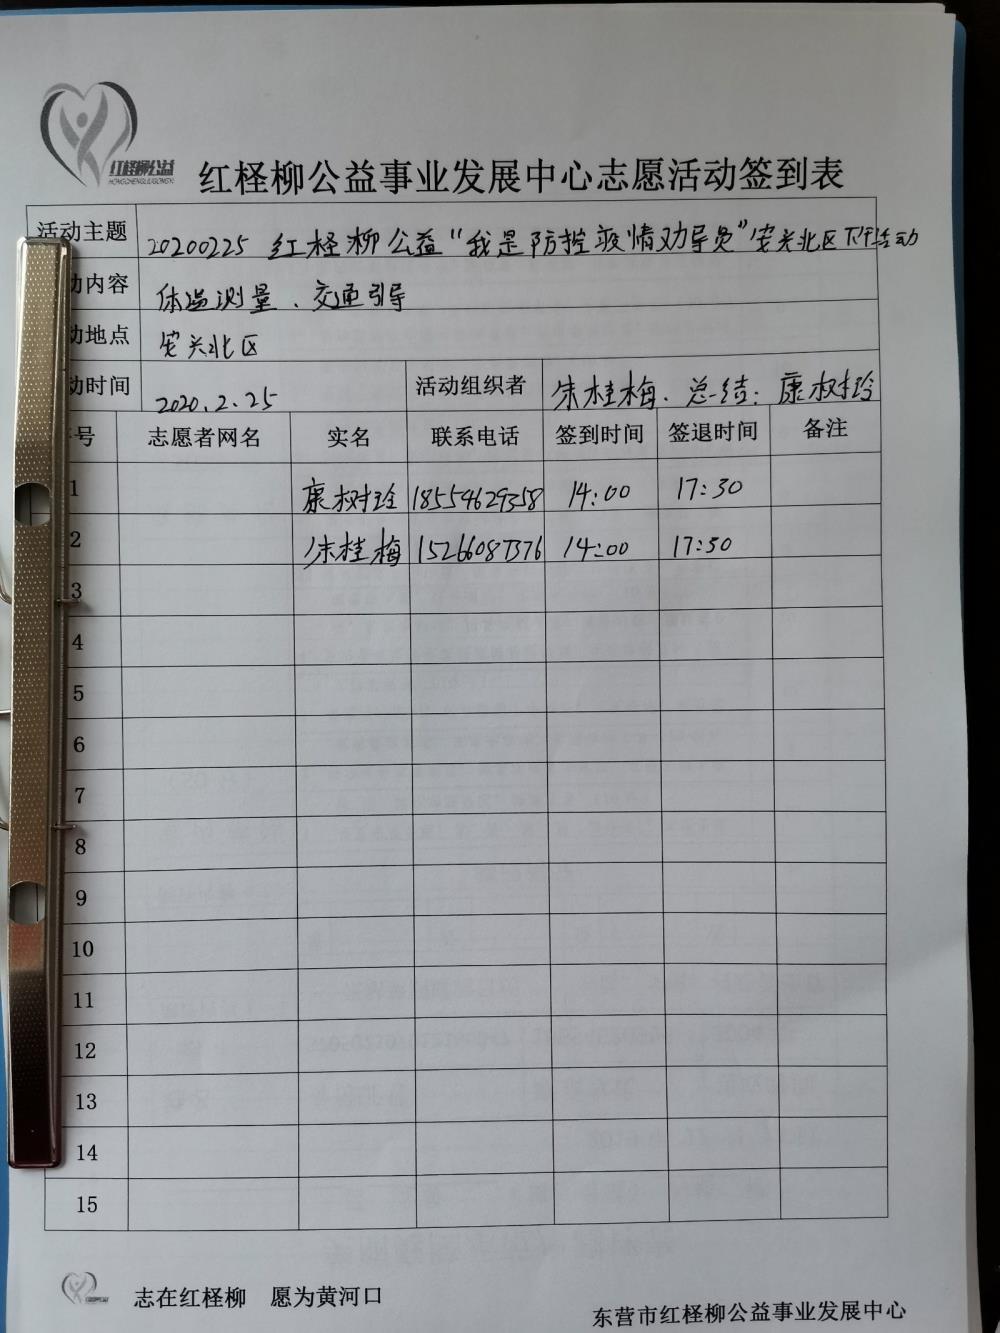 红柽柳公益
HONGCHENGLIUGONGYI
红柽柳公益事业发展中心志愿活动签到表
活动主题 20200225 红柽柳公益“我是防控疫情劝导员”安兴北区下午活动
动内容 体温测量、交通引导
动地点 安兴北区
动时间 2020.2.25 活动组织者 朱桂梅. 总结: 康树玲
号 志愿者网名 实名 联系电话 签到时间 签退时间 备注
1 康树玲 18554629358 14:00 17:30
2 朱桂梅 15266087376 14:00 17:30
3
4
5
6
7
8
9
10
11
12
13
14
15
志在红柽柳 愿为黄河口
东营市红柽柳公益事业发展中心